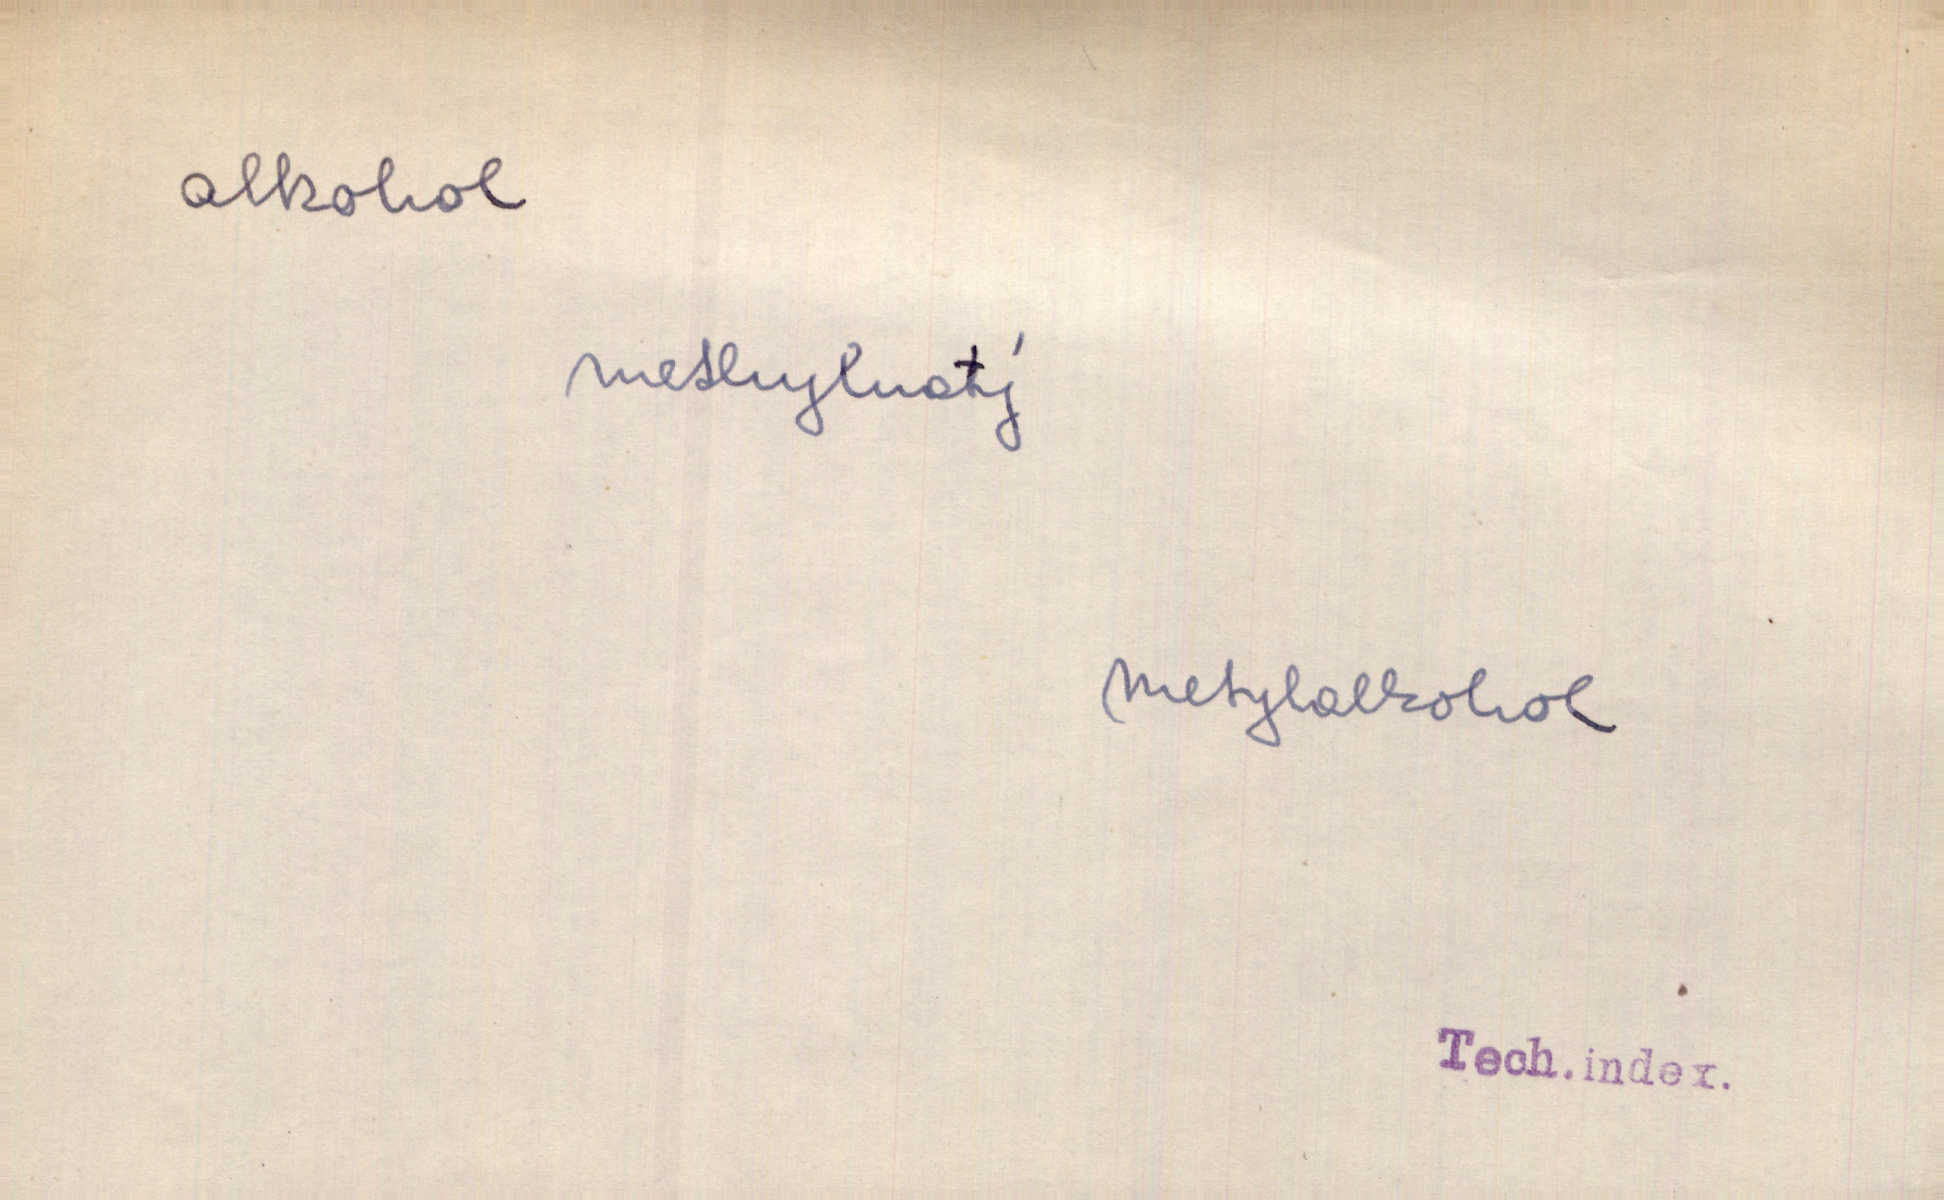 alkohol
methylnatý
metylalkohol
Tech.index.